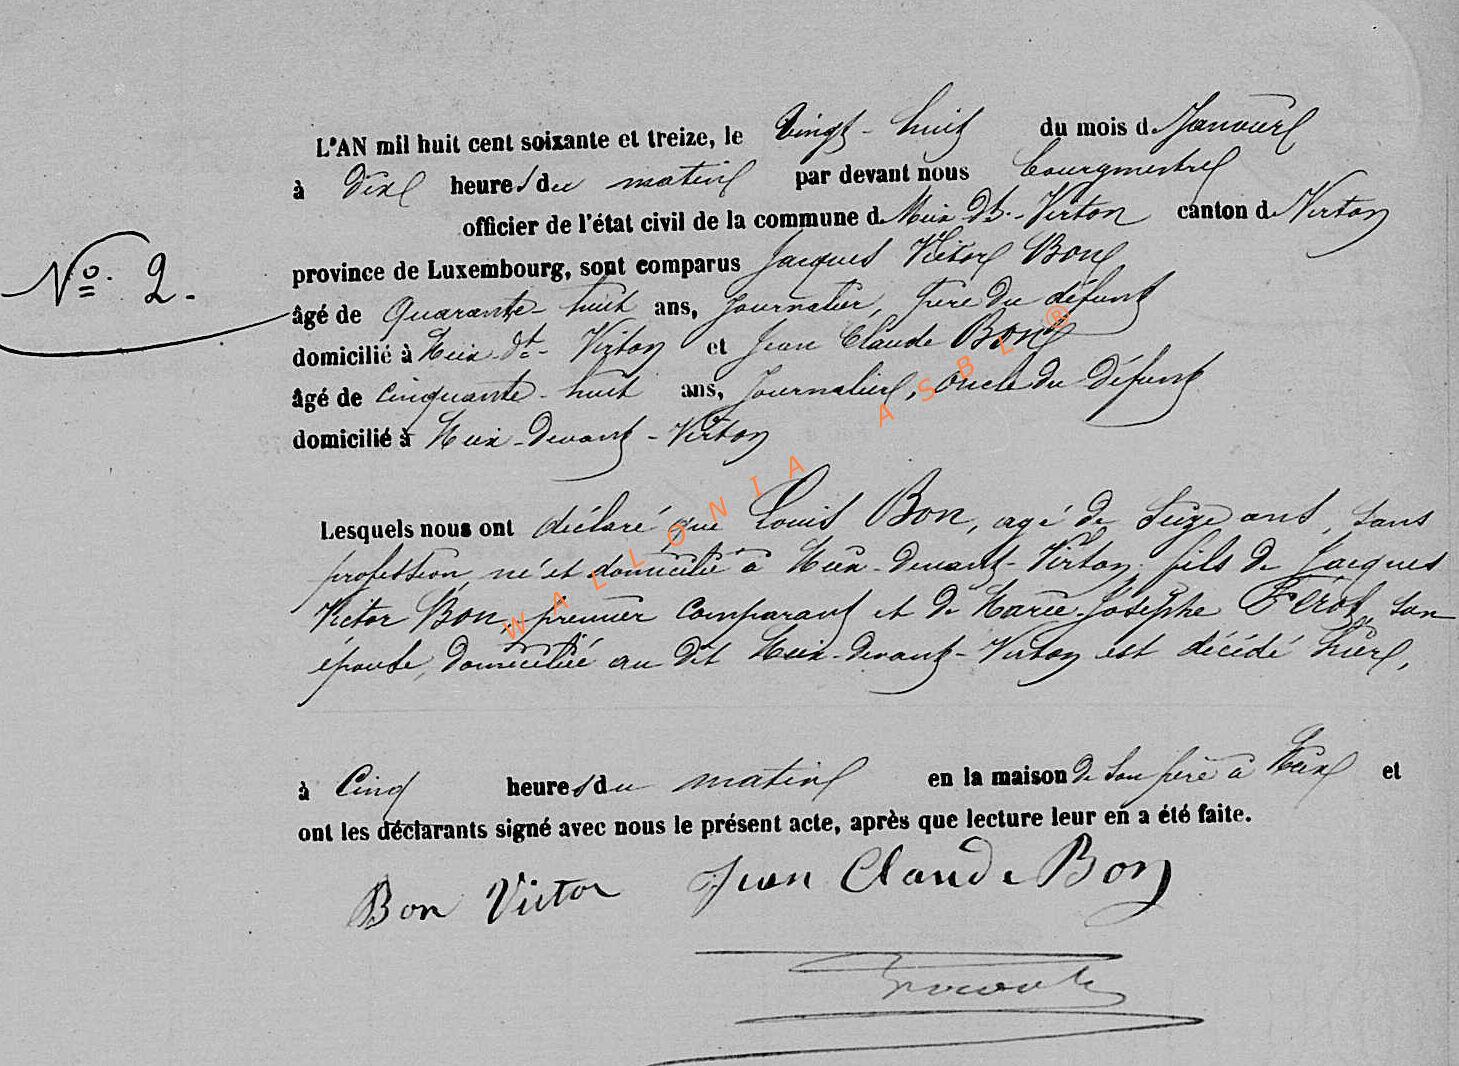 L'AN mil huit cent soixante et treize, le vingt-huit du mois de Janvier
à dix heures du matin par devant nous Bourgmestre
officier de l'état civil de la commune de Meix-dt.-Virton canton de Virton
province de Luxembourg, sont comparus Jacques Victor Bon
No. 2.
âgé de Quarante-huit ans, Journalier, père du défunt
domicilié à Meix-dt-Virton et Jean Claude Bon
âgé de cinquante-huit ans, Journalier, oncle du Défunt
domicilié à Meix-devant-Virton
Lesquels nous ont déclaré que Louis Bon, agé de seize ans, sans
profession, né et domicilié à Meix-devant-Virton, fils de Jacques
Victor Bon, premier comparant et de Marie-Josèphe son
épouse, domiciliée au dit Meix-devant-Virton est décédé hier,
à Cinq heures du matin en la maison de son père à Meix et
ont les déclarants signé avec nous le présent acte, après que lecture leur en a été faite.
Bon Victor Jean Claude Bon
WALLONIA ASBL ®